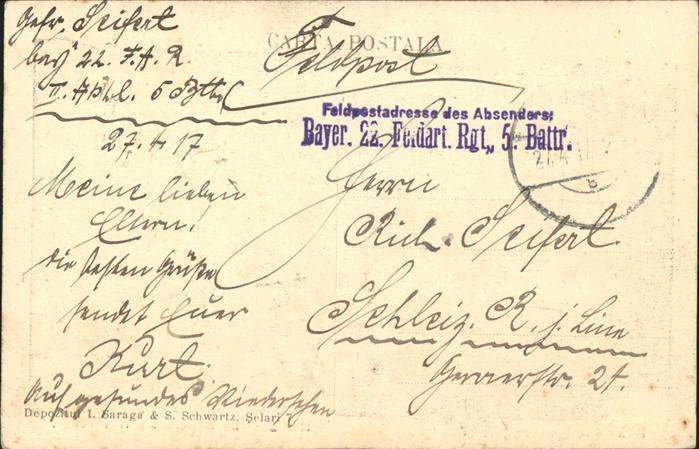 Gefr. Seifert
bay. 22. F. A. R.
II. Abtl. 5 Bttr.
27. 4. 17
Meine lieben
Eltern!
die besten Grüße
sendet Euer
Kurt.
Auf gesundes Wiedersehen
Depozitul I. Saraga & S. Schwartz, Selari
CARTA POSTALA
Feldpost
Feldpostadresse des Absenders:
Bayer. 22. Feldart. Rgt., 5. Battr.
27.4.17
Herrn
Rich. Seifert.
Schleiz. R. j. Linie
Geraerstr. 21.